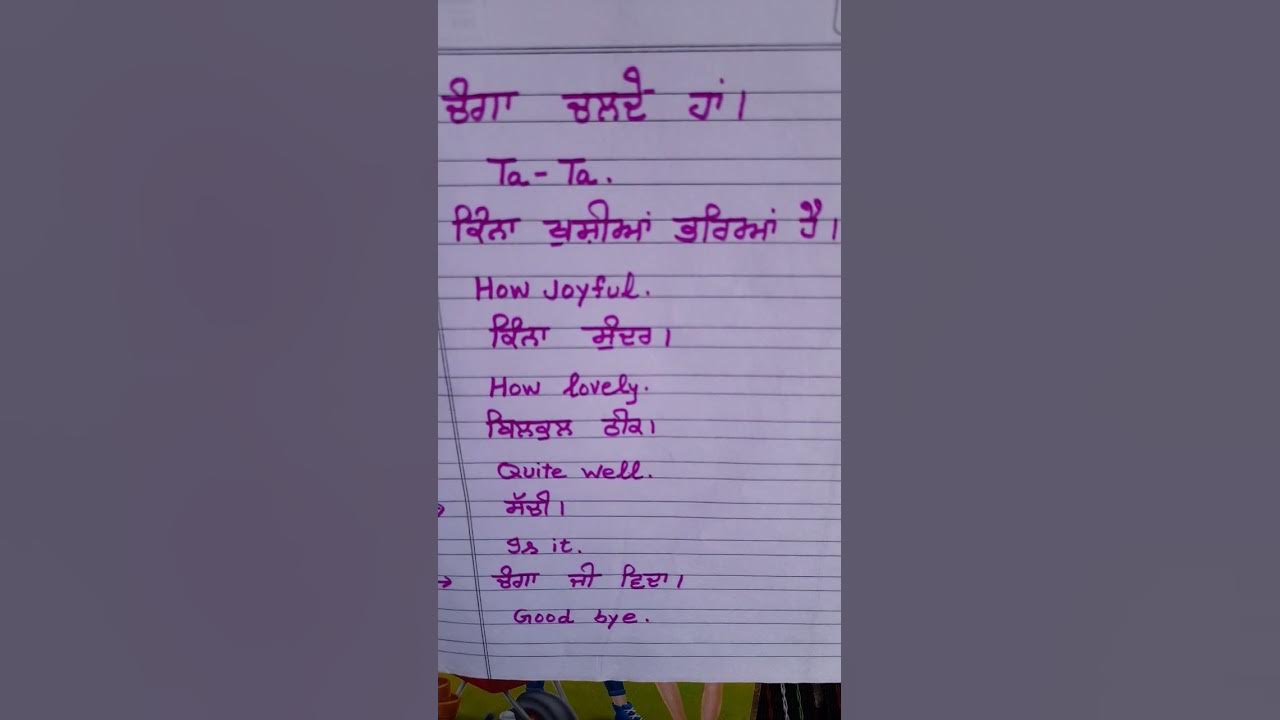 ਚੰਗਾ ਚਲਦੇ ਹਾਂ।
Ta-Ta.
ਕਿੰਨਾ ਖੁਸ਼ੀਆਂ ਭਰਿਆਂ ਹੈ।
How Joyful.
ਕਿੰਨਾ ਸੁੰਦਰ।
How lovely.
ਬਿਲਕੁਲ ਠੀਕ।
Quite well.
→ ਸੱਚੀ।
Is it.
→ ਚੰਗਾ ਜੀ ਵਿਦਾ।
Good bye.